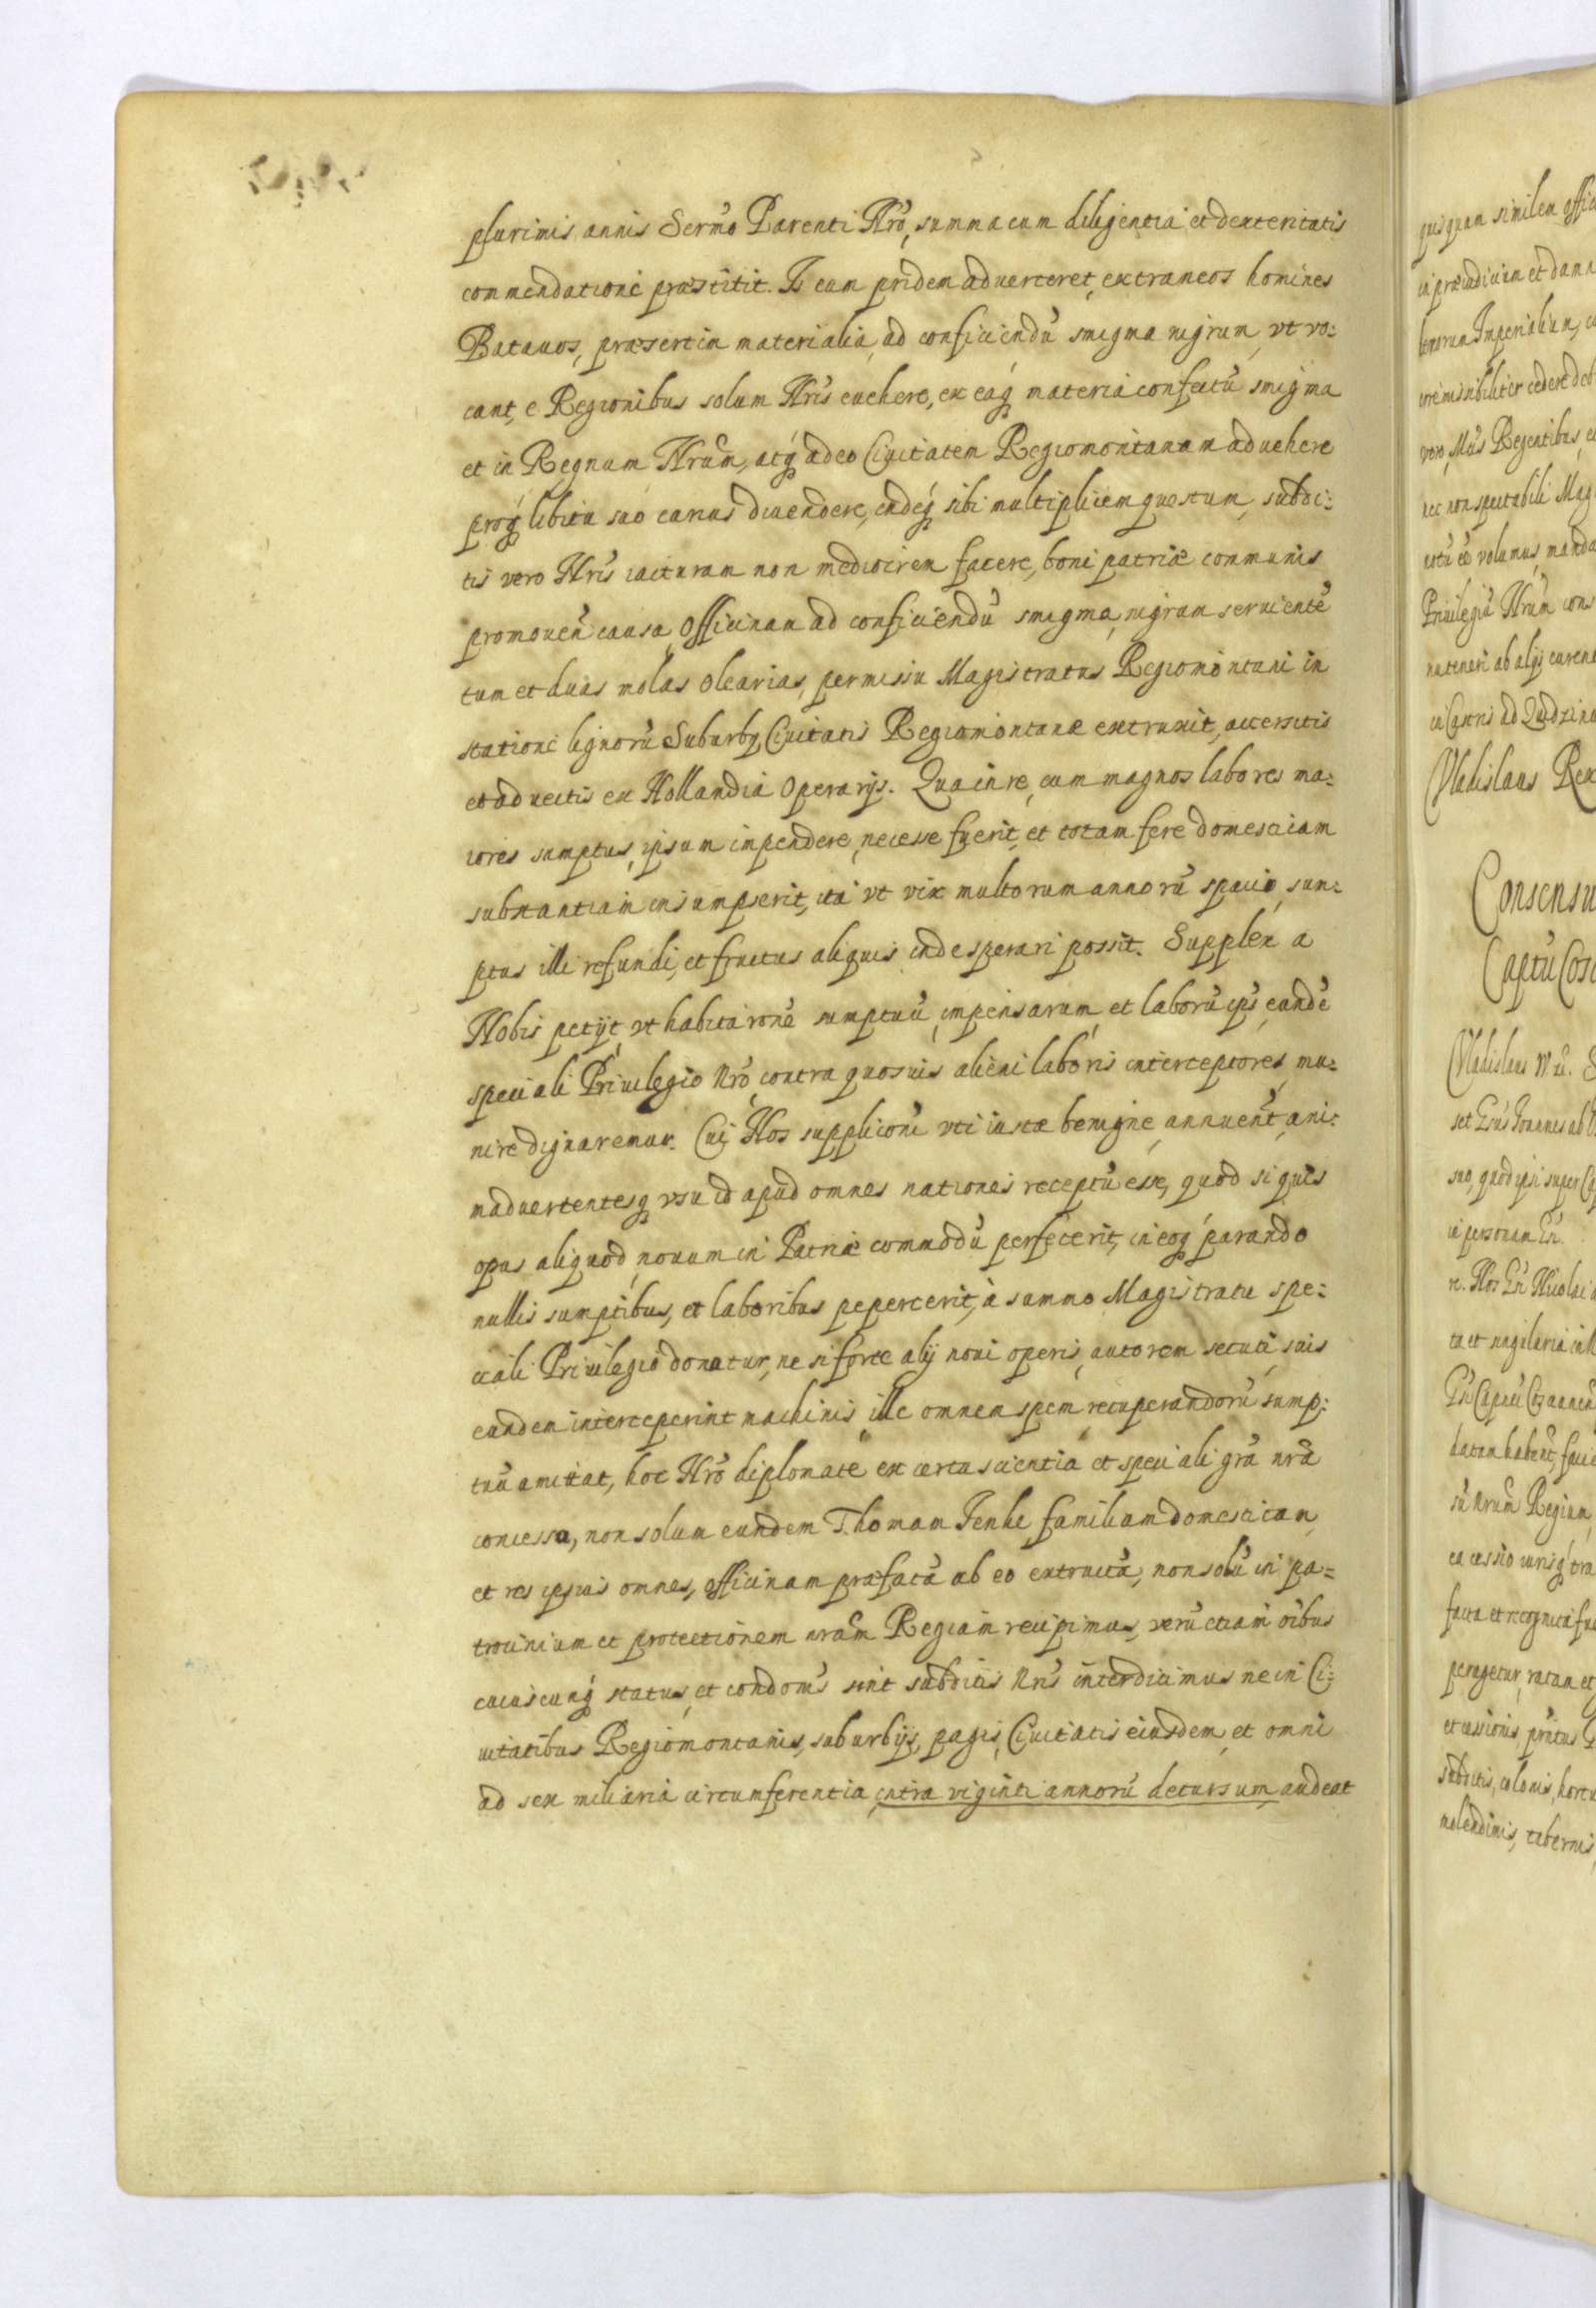 plurimis annis Sermo Parenti Nro, summa cum diligentia et dexteritatis
commendatione præstitit. Is cum pridem aduerteret, extraneos homines
Batauos, præsertim materialia, ad conficiendu smigma nigrum, vt vo:
cant, e Regionibus solum Nris euehere, ex eaq materia confectu smigma
et in Regnum Nrum, atq adeo Ciuitatem Regiomontanam aduehere
proq libitu suo carius diuendere, indeq sibi multiplicem quæstum, subdi:
tis vero Nris iacturam non mediocrem facere, boni patriæ communis
promouen causa, Officinam ad conficiendu smigma, nigrum seruiente
tum et duas molas Olearias, permissu Magistratus Regiomontani in
statione lignoru Suburbij Ciuitatis Regiomontanæ extruxit, accersitis
et aduectis ex Hollandia Operarijs. Qua in re, cum magnos labores ma:
iores sumptus, ipsum impendere, necesse fuerit, et totam fere domesticam
substantiam insumpserit, ita vt vix multorum annoru spacio, sum:
ptus illi refundi, et fructus aliquis inde sperari possit. Supplex a
Nobis petijt, vt habita rone sumptuu, impensarum, et laboru ipius, eunde
speciali Priuilegio Nro, contra quosuis alieni laboris interceptores, mu:
nire dignaremur. Cui Nos suppliconi vti iustæ benigne, annuent, ani:
maduertentesq vsu id apud omnes nationes receptu esse, quod si quis
opus aliquod, nouum in Patriæ commodu perfecerit, in eoq parando
nullis sumptibus, et laboribus pepercerit, à summo Magistratu spe:
ciali Priuilegio donatur, ne si forte alij noui operis, autorem secuti, suis
eundem interceperint machinis, ille omnem spem, recuperandoru sump:
tuu amittat, hoc Nro diplomate ex certa scientia et speciali gra nra
concesso, non solum eundem Thomam Jenke, familiam domesticam
et res ipsius omnes, officinam præfata ab eo extructa, non solu in pa=
trocinium et protectionem nram Regiam recipimus, veru etiam oibus
cuiuscunq status, et condonis sint subditis Nris interdicimus ne in Ci:
uitatibus Regiomontanis, suburbijs, pagis, Ciuitatis eiusdem, et omni
ad sex miliaria circumferentia, intra viginti annoru decursum, audeat
quisquam similem
in præiudicium et
Imperialium,
cedere
vero, Mris Regentibus,
nec non spectabili
volumus,
Priuilegiu Nrum
ab alijs
Vladislaus Rex
Consensu
Captu
Vladislaus
Joannes
suo, quod ipsi super
in personam
Nos
ta et
su nrum Regium
ea cessio iurisq
facta et recognita
peragetur, ratam et
et cessionis,
subditis, colonis,
molendinis, tabernis